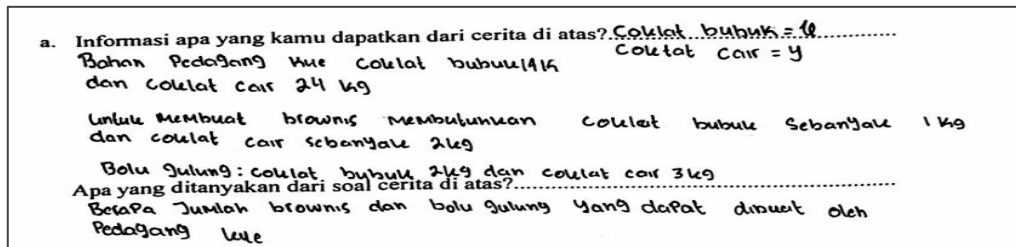 a. Informasi apa yang kamu dapatkan dari cerita di atas? Coklat bubuk = x
Coklat cair = y
Bahan Pedagang kue coklat bubuk 14 K
dan coklat cair 24 kg
untuk membuat brownis membutuhkan coklat bubuk sebanyak 1 kg
dan coklat cair sebanyak 2kg
Bolu gulung : coklat bubuk 2kg dan coklat cair 3kg
Apa yang ditanyakan dari soal cerita di atas?
Berapa Jumlah brownis dan bolu gulung yang dapat dibuat oleh
Pedagang kue